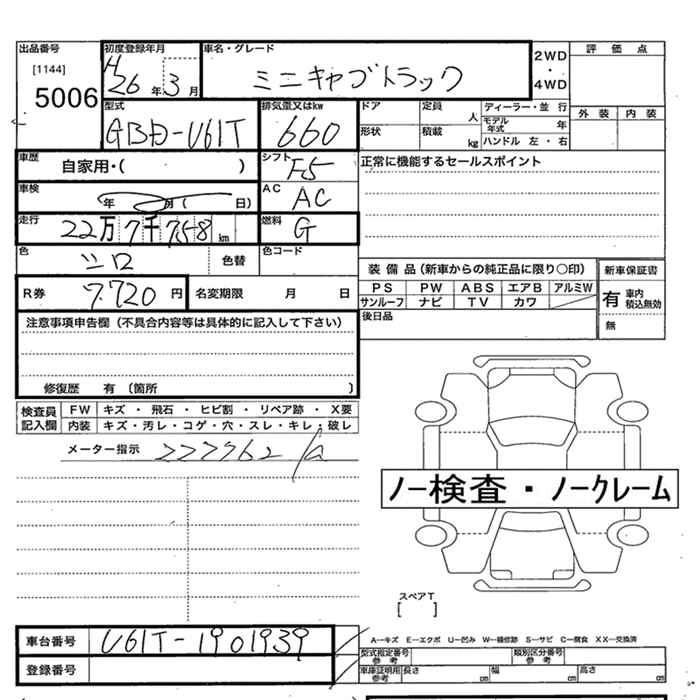 出品番号 初度登録年月 車名・グレード 2WD・4WD 評価点
[1144] 5006 H26年3月 ミニキャブトラック
型式 排気量又はkw ドア 定員 人 ディーラー・並行 外装 内装
GBD-U61T 660 形状 積載 kg モデル年式 年 ハンドル 左・右
車歴 自家用・( ) シフト F5 正常に機能するセールスポイント
車検 年 月( 日) AC AC
走行 22万7千758km 燃料 G
色 シロ 色替 色コード
装備品(新車からの純正品に限り○印) 新車保証書
R券 7,720円 名変期限 月 日 PS PW ABS エアB アルミW 有 車内積込無効
サンルーフ ナビ TV カワ 無
注意事項申告欄(不具合内容等は具体的に記入して下さい) 後日品
修復歴 有 〔箇所 〕
検査員記入欄 FW キズ・飛石・ヒビ割・リペア跡・X要
内装 キズ・汚レ・コゲ・穴・スレ・キレ・破レ
メーター指示 227762
ノー検査・ノークレーム
スペアT
[ ]
車台番号 U61T-1901939 A―キズ E―エクボ U―凹み W―補修跡 S―サビ C―腐食 XX―交換済
型式指定番号 参考 類別区分番号 参考
登録番号 車庫証明用 参考 長さ cm 幅 cm 高さ cm